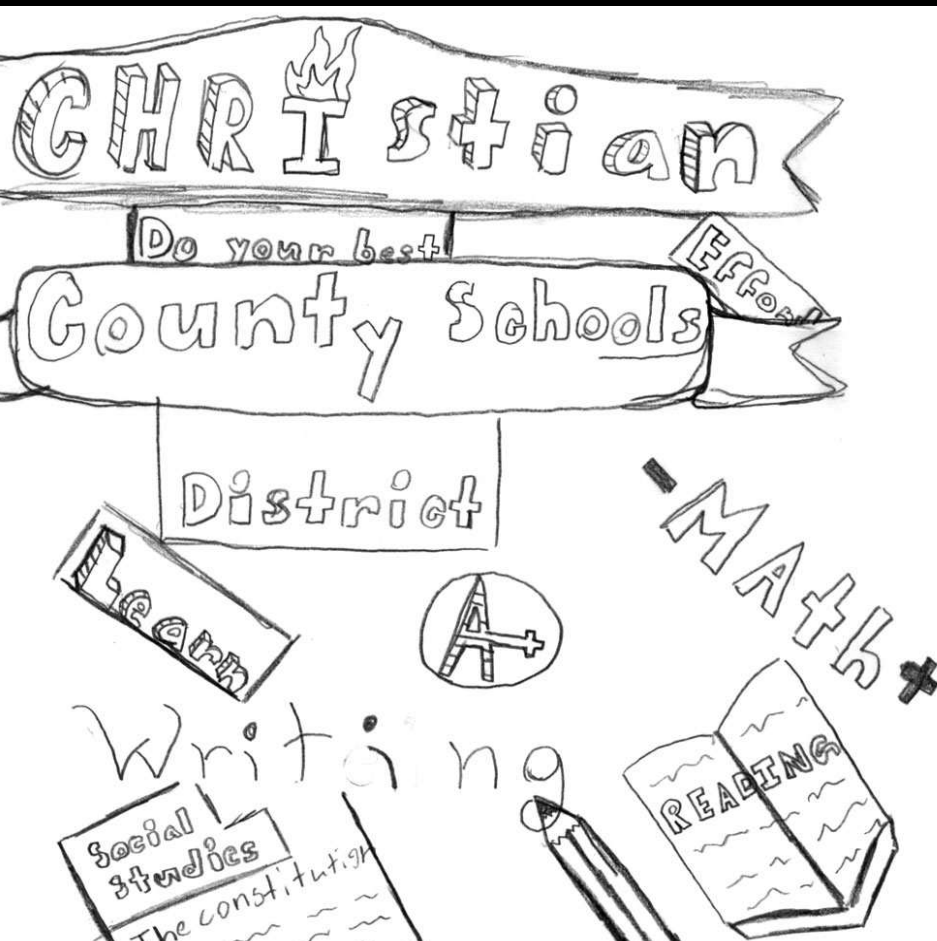 CHRIstian
Do your best
Effort
County Schools
District
- MAth +
Learn
A+
Writing
READING
Social
studies
The constitution